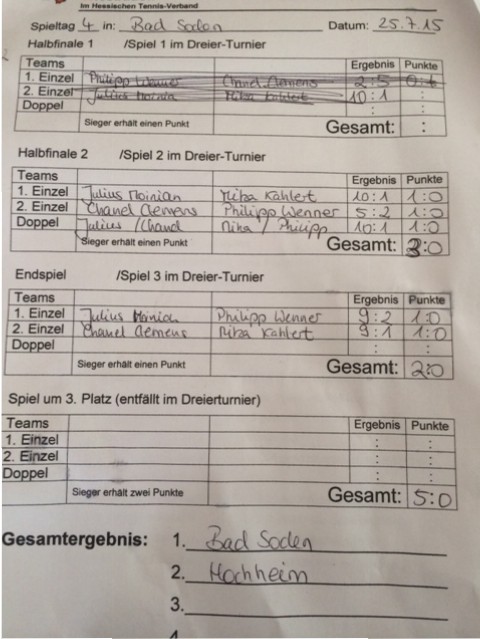 Im Hessischen Tennis-Verband
Spieltag 4 in: Bad Soden Datum: 25.7.15
Halbfinale 1 /Spiel 1 im Dreier-Turnier
Teams Ergebnis Punkte
1. Einzel Philipp Wenner Chanel Clemens 2:5
2. Einzel Julius Moinian Mika Kahlert 10:1 :
Doppel : :
Sieger erhält einen Punkt Gesamt: :
Halbfinale 2 /Spiel 2 im Dreier-Turnier
Teams Ergebnis Punkte
1. Einzel Julius Moinian Mika Kahlert 10:1 1:0
2. Einzel Chanel Clemens Philipp Wenner 5:2 1:0
Doppel Julius / Chanel Mika / Philipp 10:1 1:0
Sieger erhält einen Punkt Gesamt: 3:0
Endspiel /Spiel 3 im Dreier-Turnier
Teams Ergebnis Punkte
1. Einzel Julius Moinian Philipp Wenner 9:2 1:0
2. Einzel Chanel Clemens Mika Kahlert 9:1 1:0
Doppel : :
Sieger erhält einen Punkt Gesamt: 2:0
Spiel um 3. Platz (entfällt im Dreierturnier)
Teams Ergebnis Punkte
1. Einzel : :
2. Einzel : :
Doppel : :
Sieger erhält zwei Punkte Gesamt: 5:0
Gesamtergebnis: 1. Bad Soden
2. Hochheim
3.